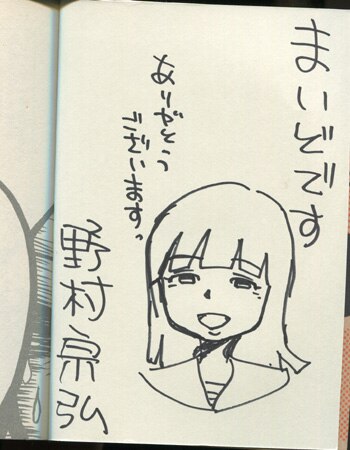 まいどです
ありがとう
ございます。
野村宗弘